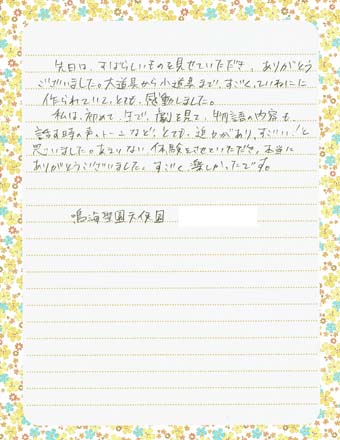 先日は、すばらしいものを見せていただき、ありがとう
ございました。大道具から小道具まで、すごくていねいに
作られていて、とても感動しました。
私は、初めて生で、劇を見て、物語の内容も、
話す時の声のトーンなど、とても迫力があり、すごい!と
思いました。あまりない体験をさせていただき、本当に
ありがとうございました。すごく楽しかったです。
鳴海